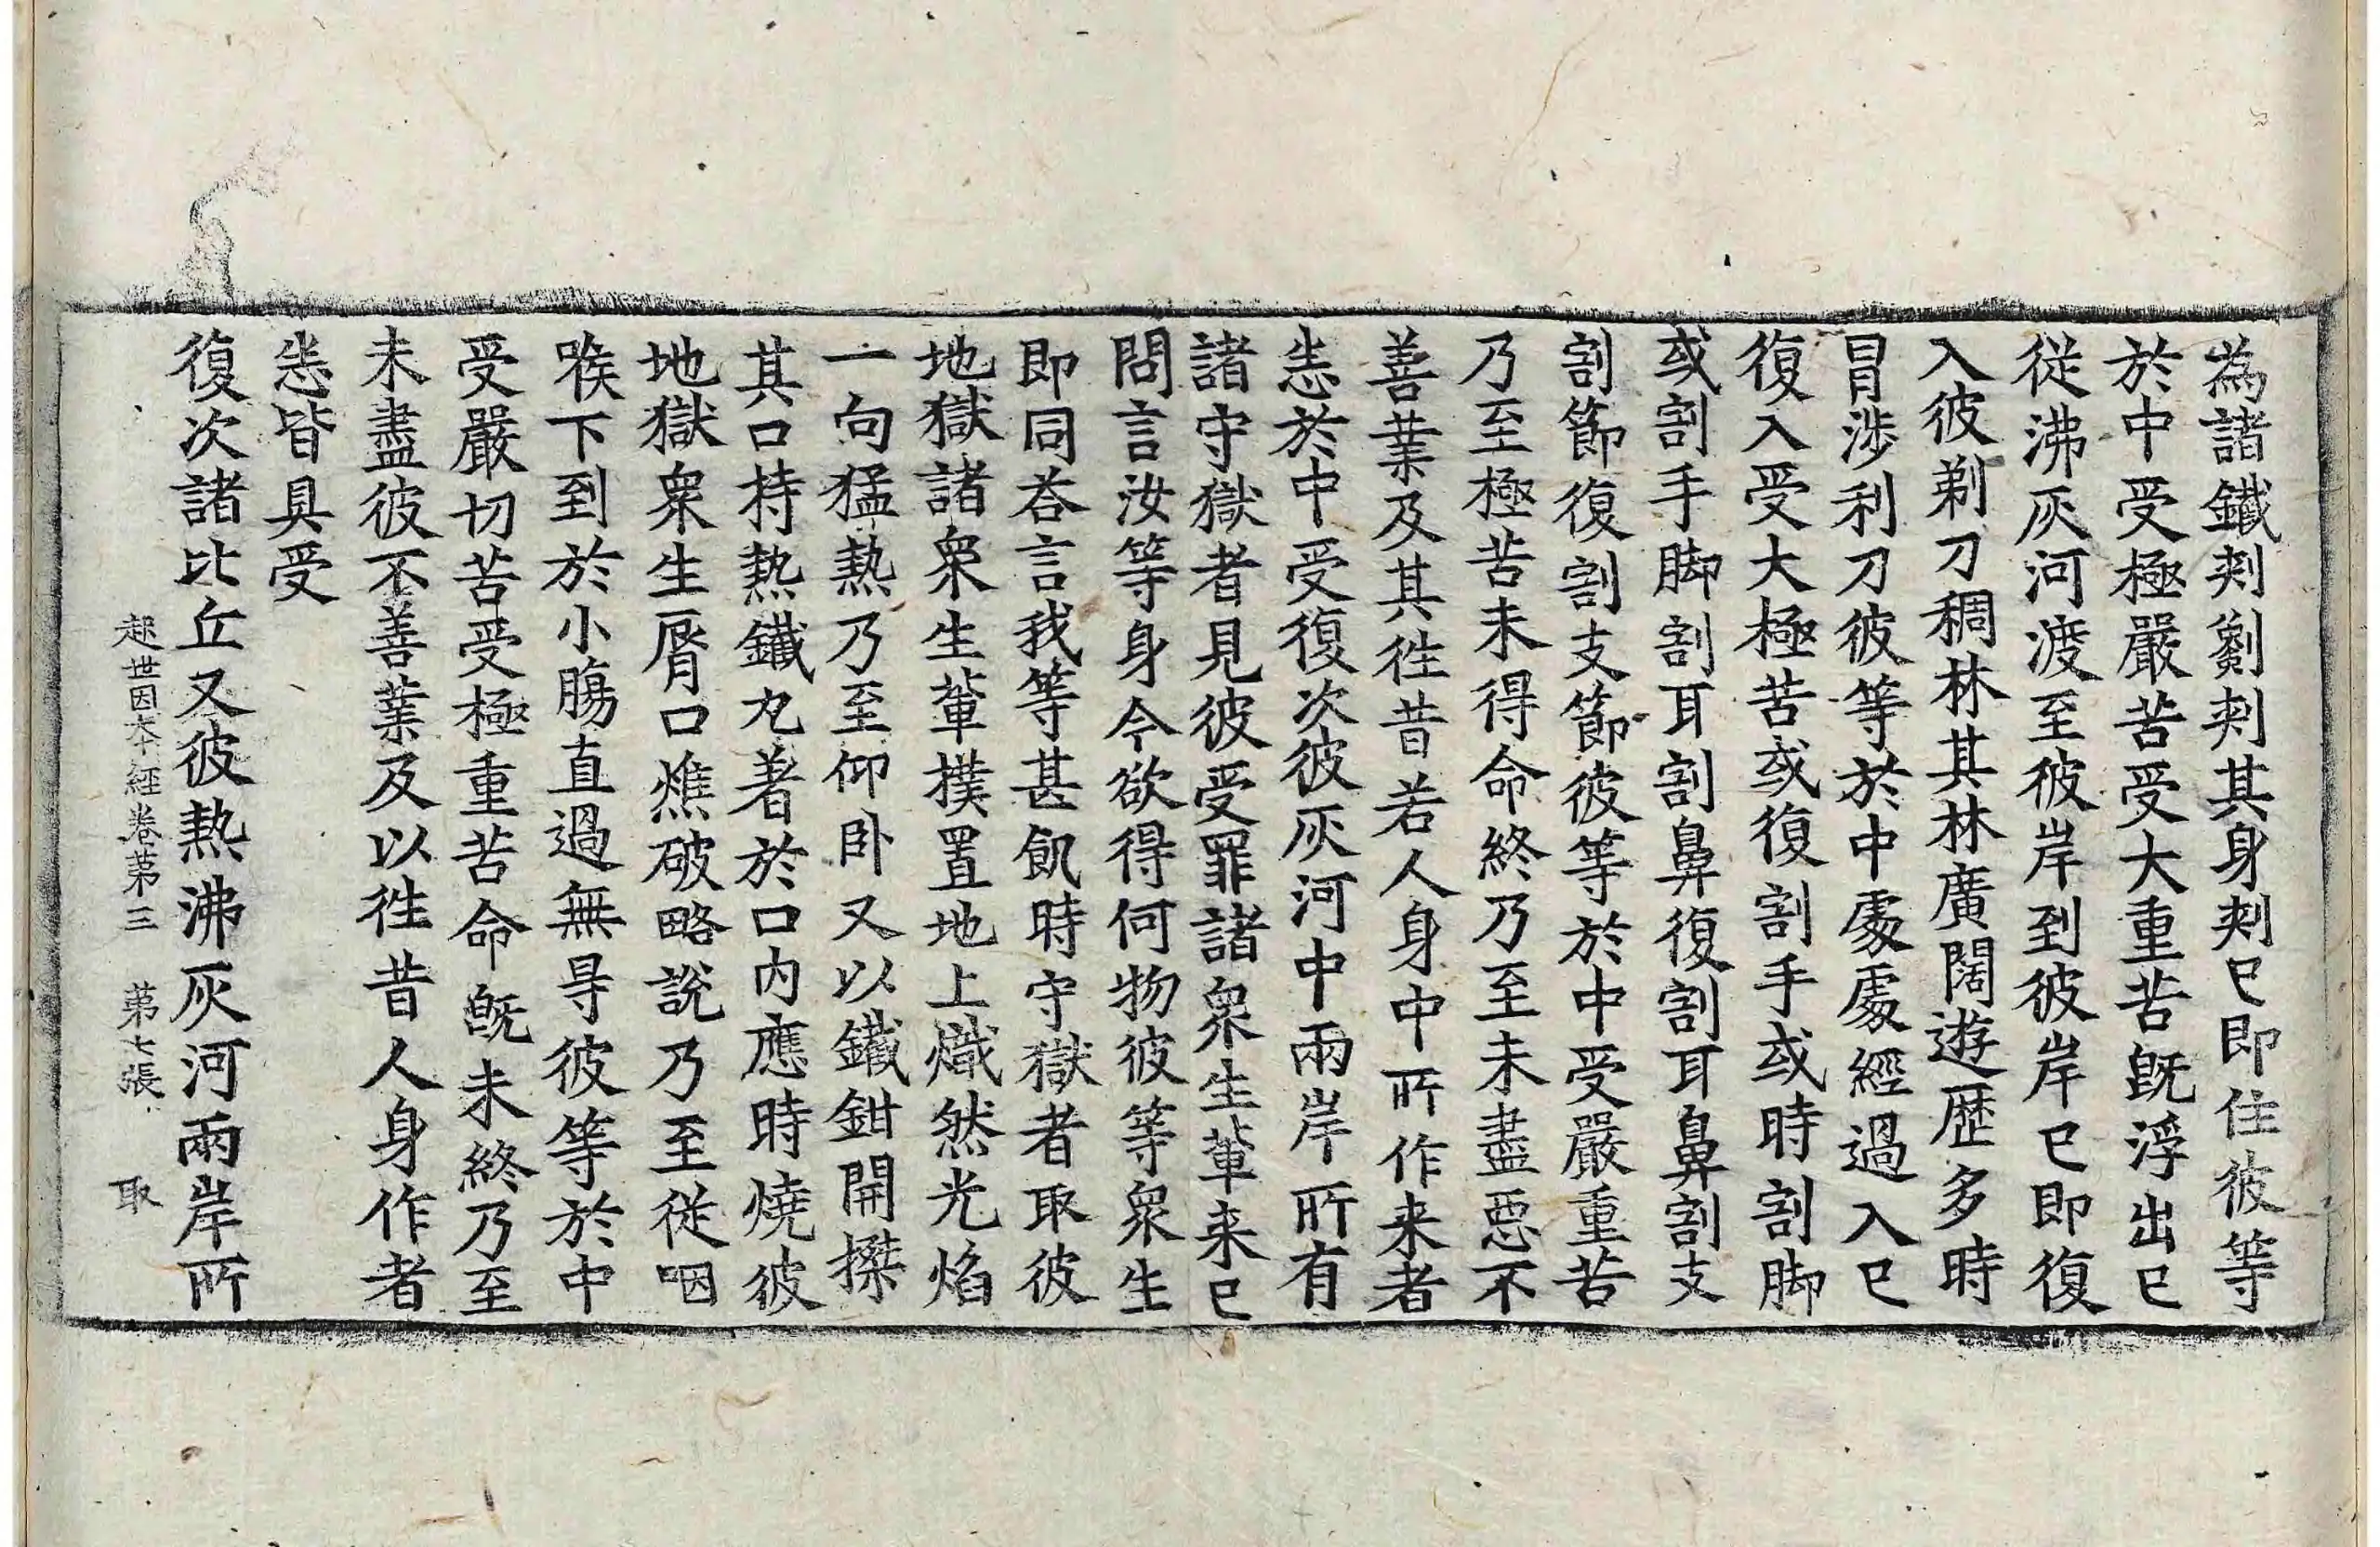 為諸鐵刾劉刾其身刾已即住彼等
於中受極嚴苦受大重苦旣浮出已
從沸灰河渡至彼岸到彼岸已即復
入彼剃刀稠林其林廣闊遊歷多時
冒涉利刀彼等於中處處經過入已
復入受大極苦或復割手或時割脚
或割手脚割耳割鼻復割耳鼻割支
割節復割支節彼等於中受嚴重苦
乃至極苦未得命終乃至未盡惡不
善業及其徃昔若人身中所作来者
悉於中受復次彼灰河中兩岸所有
諸守獄者見彼受罪諸衆生輩来已
問言汝等身今欲得何物彼等衆生
即同荅言我等甚飢時守獄者取彼
地獄諸衆生輩撲置地上熾然光焰
一句猛熱乃至仰卧又以鐵鉗開㩒
其口持熱鐵丸著於口内應時燒彼
地獄衆生脣口燋破略說乃至從咽
喉下到於小膓直過無㝵彼等於中
受嚴切苦受極重苦命旣未終乃至
未盡彼不善業及以徃昔人身作者
悉皆具受
復次諸比丘又彼熱沸灰河兩岸所
起世因夲經卷第三 第七張 取